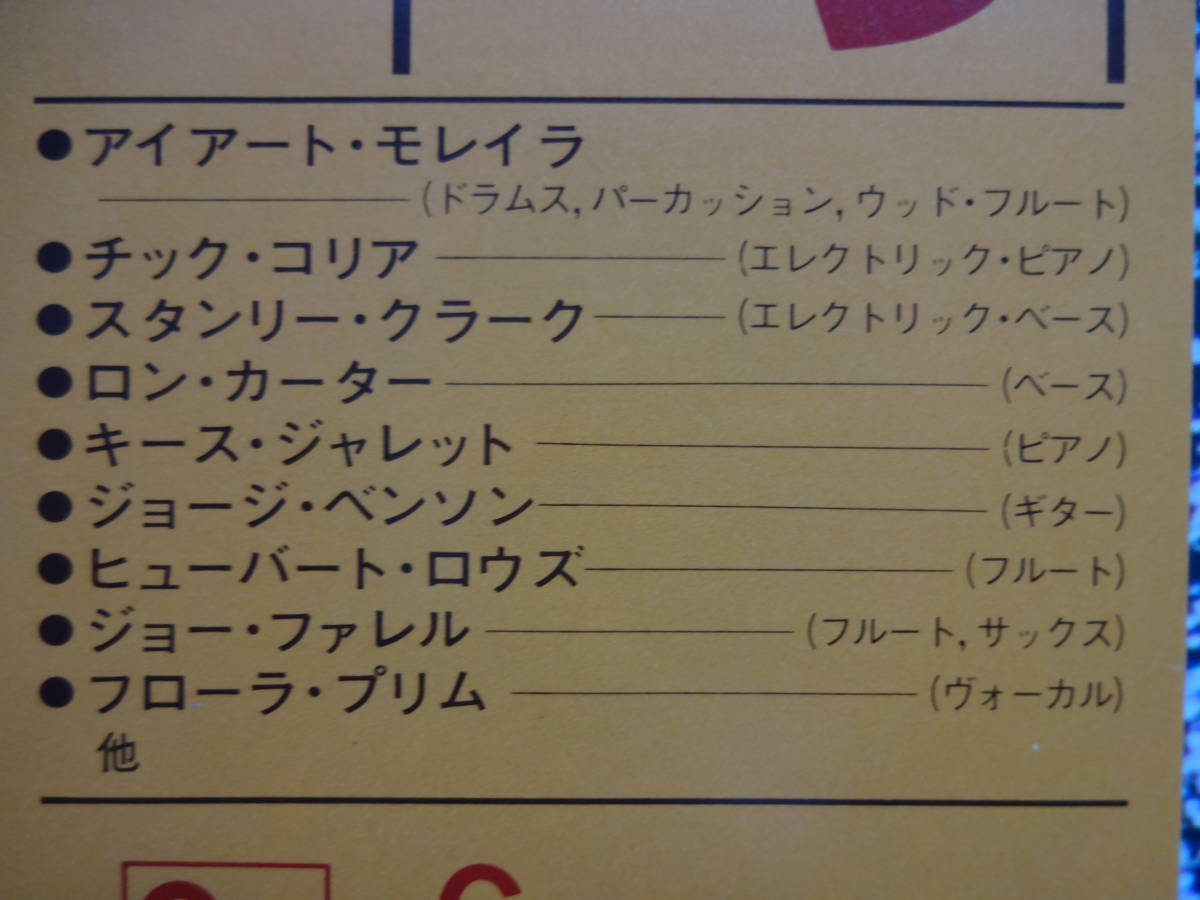 ●アイアート・モレイラ
(ドラムス, パーカッション, ウッド・フルート)
●チック・コリア (エレクトリック・ピアノ)
●スタンリー・クラーク (エレクトリック・ベース)
●ロン・カーター (ベース)
●キース・ジャレット (ピアノ)
●ジョージ・ベンソン (ギター)
●ヒューバート・ロウズ (フルート)
●ジョー・ファレル (フルート, サックス)
●フローラ・プリム (ヴォーカル)
他